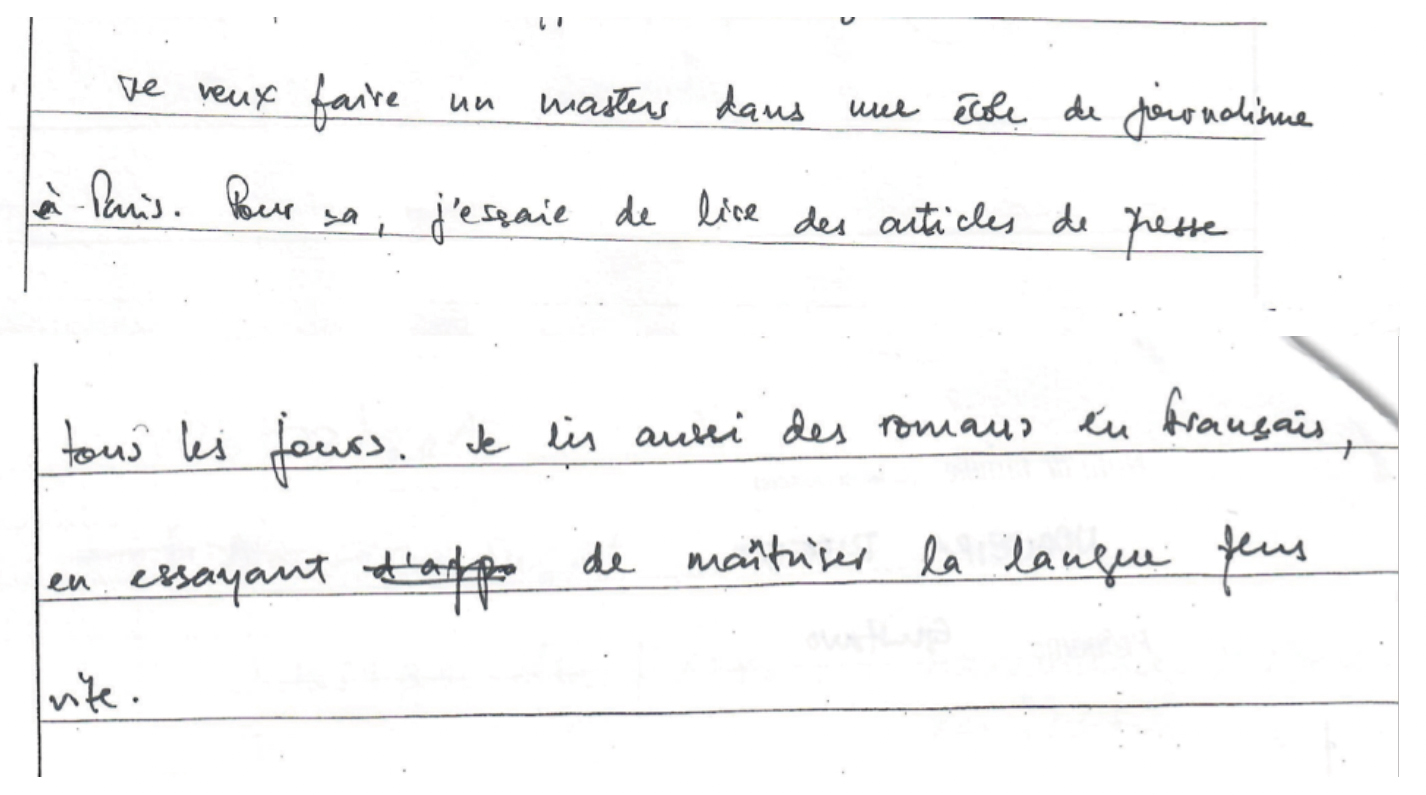 Je veux faire un masters dans une école de journalisme
à Paris. Pour sa, j'essaie de lire des articles de presse
tous les jours. Je lis aussi des romans en français,
en essayant d'app de maîtriser la langue plus
vite.